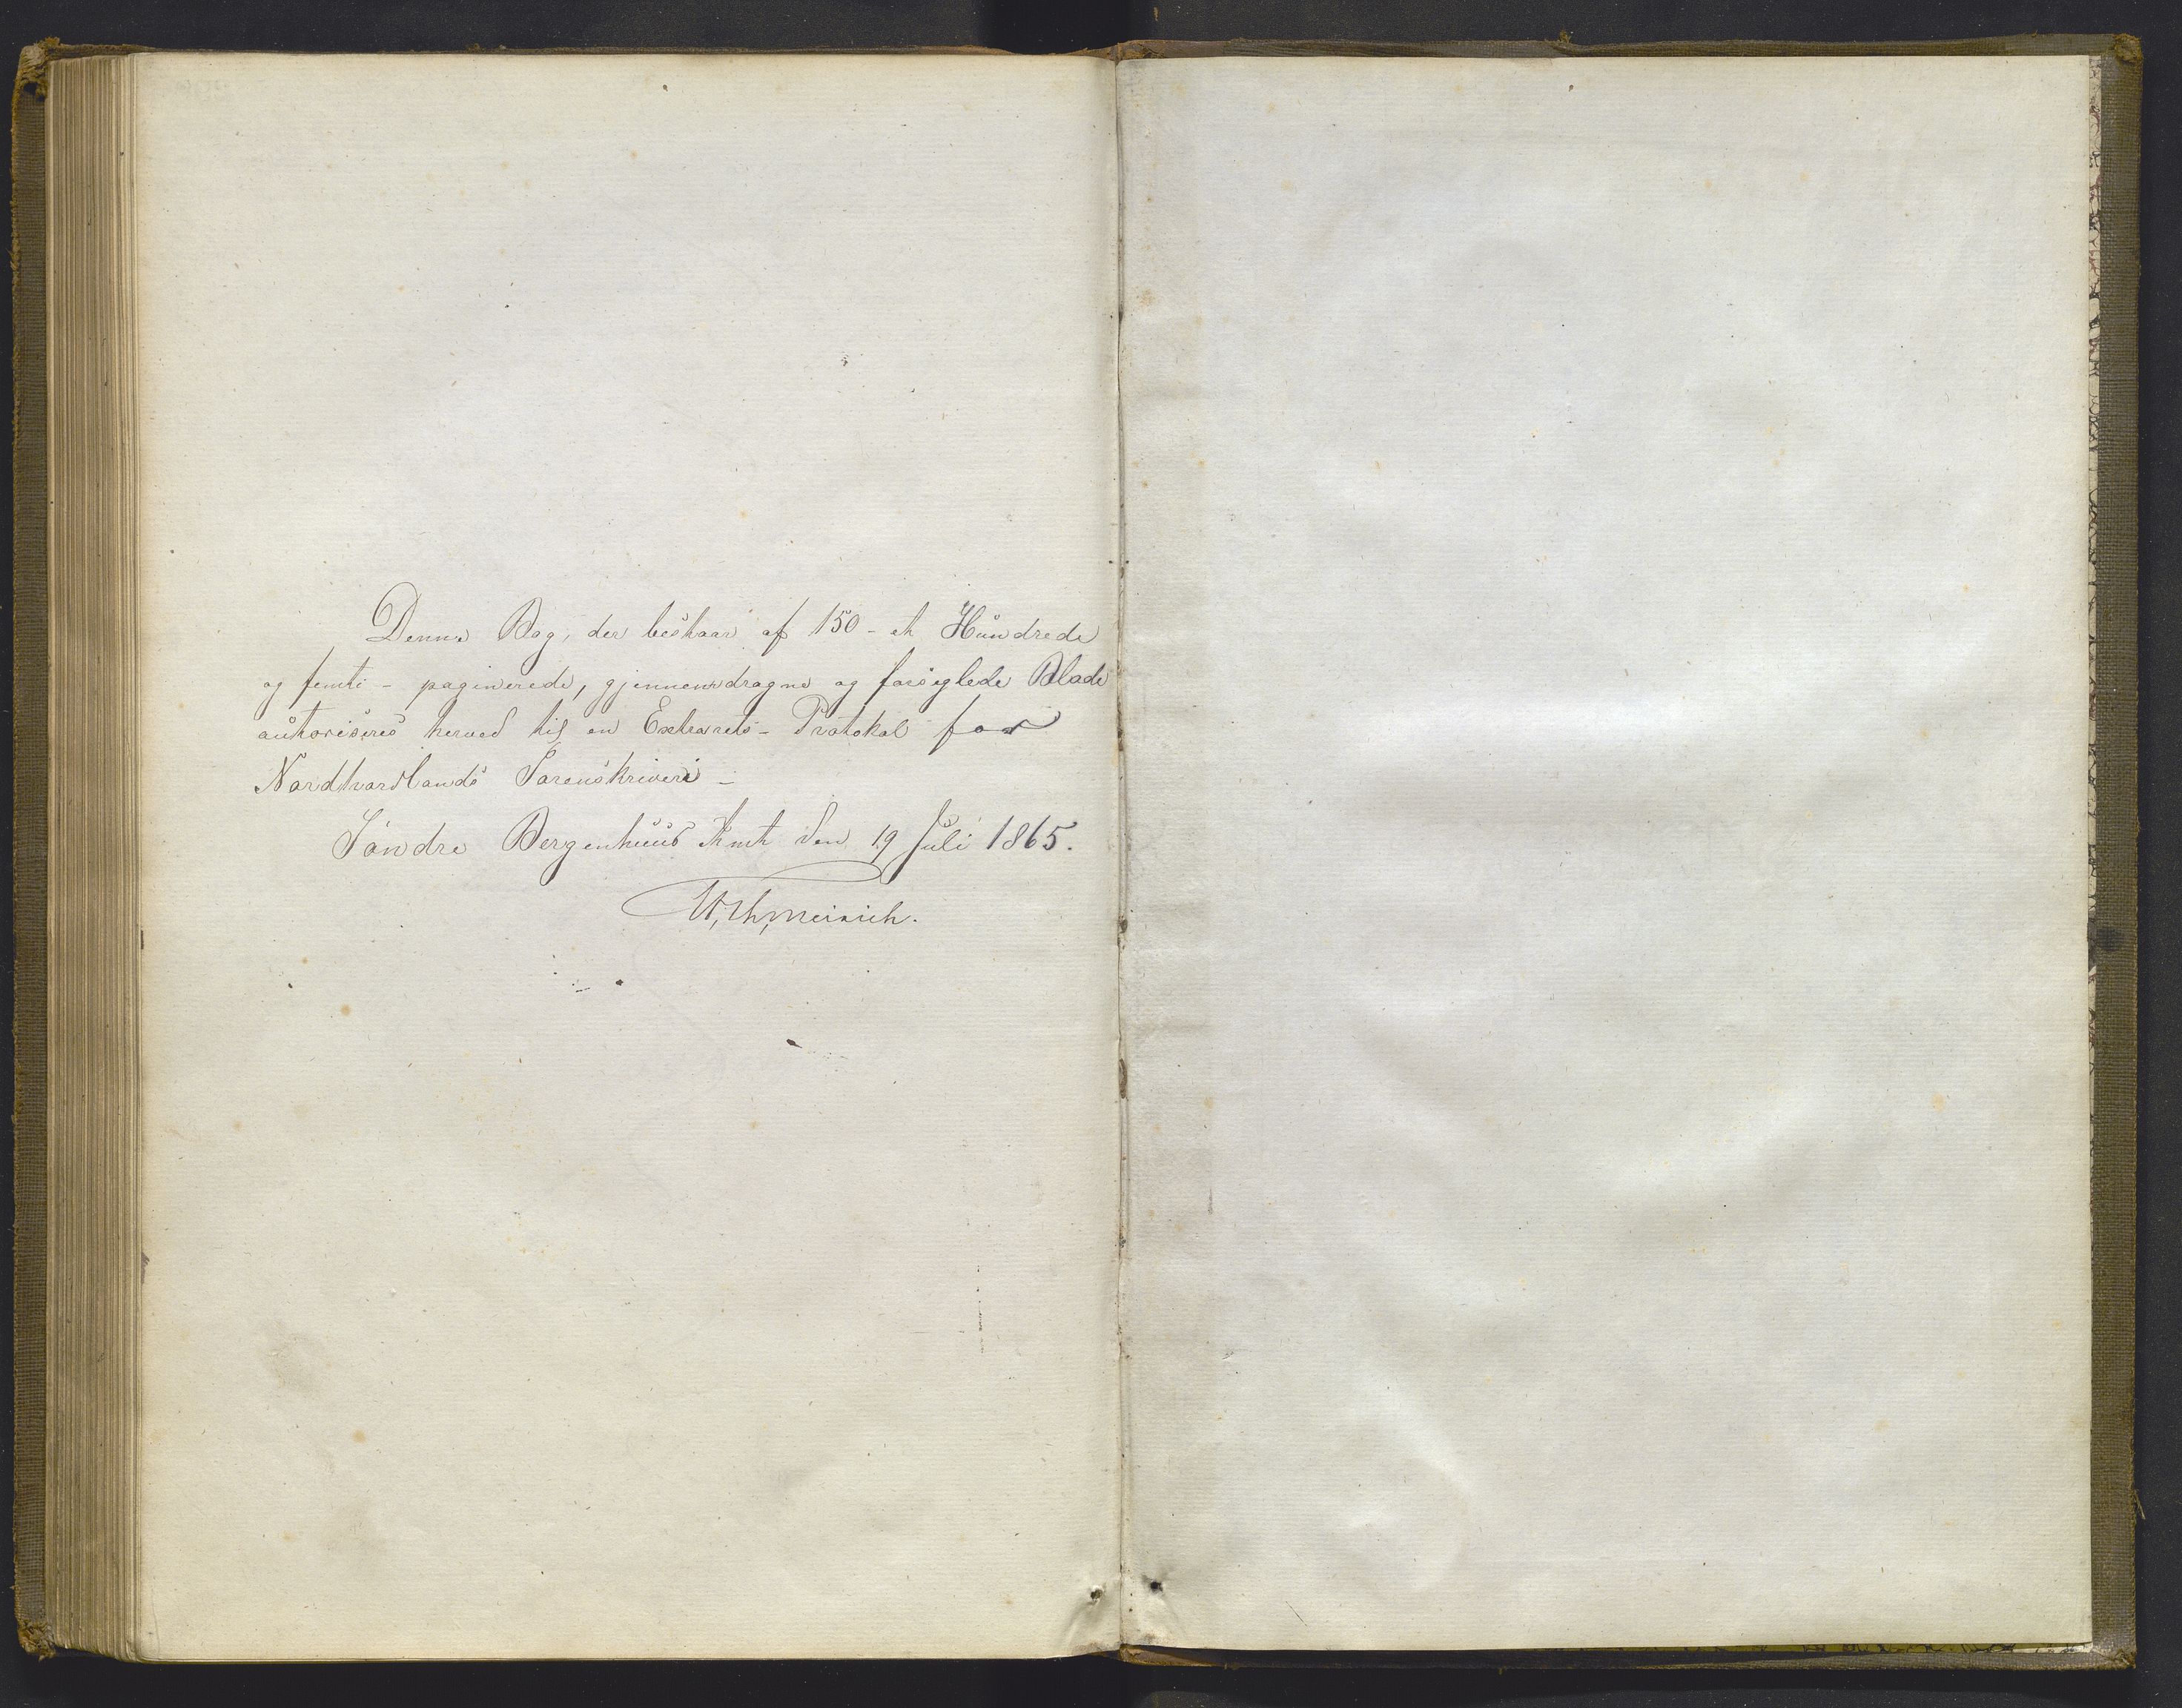 Denne Bog, der bestaar af 150 - et Hundrede
og femti - paginerede, gjennemdragne og forseglede Blade
autoriseres herved til en Extrarets - Protokol for
Nordhordlands Sorenskriveri -
Söndre Bergenhuus Amt den 19 Juli 1865.